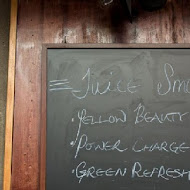 Juice Sm
• Yellow Beauty
• Power Charge
• Green Refresh